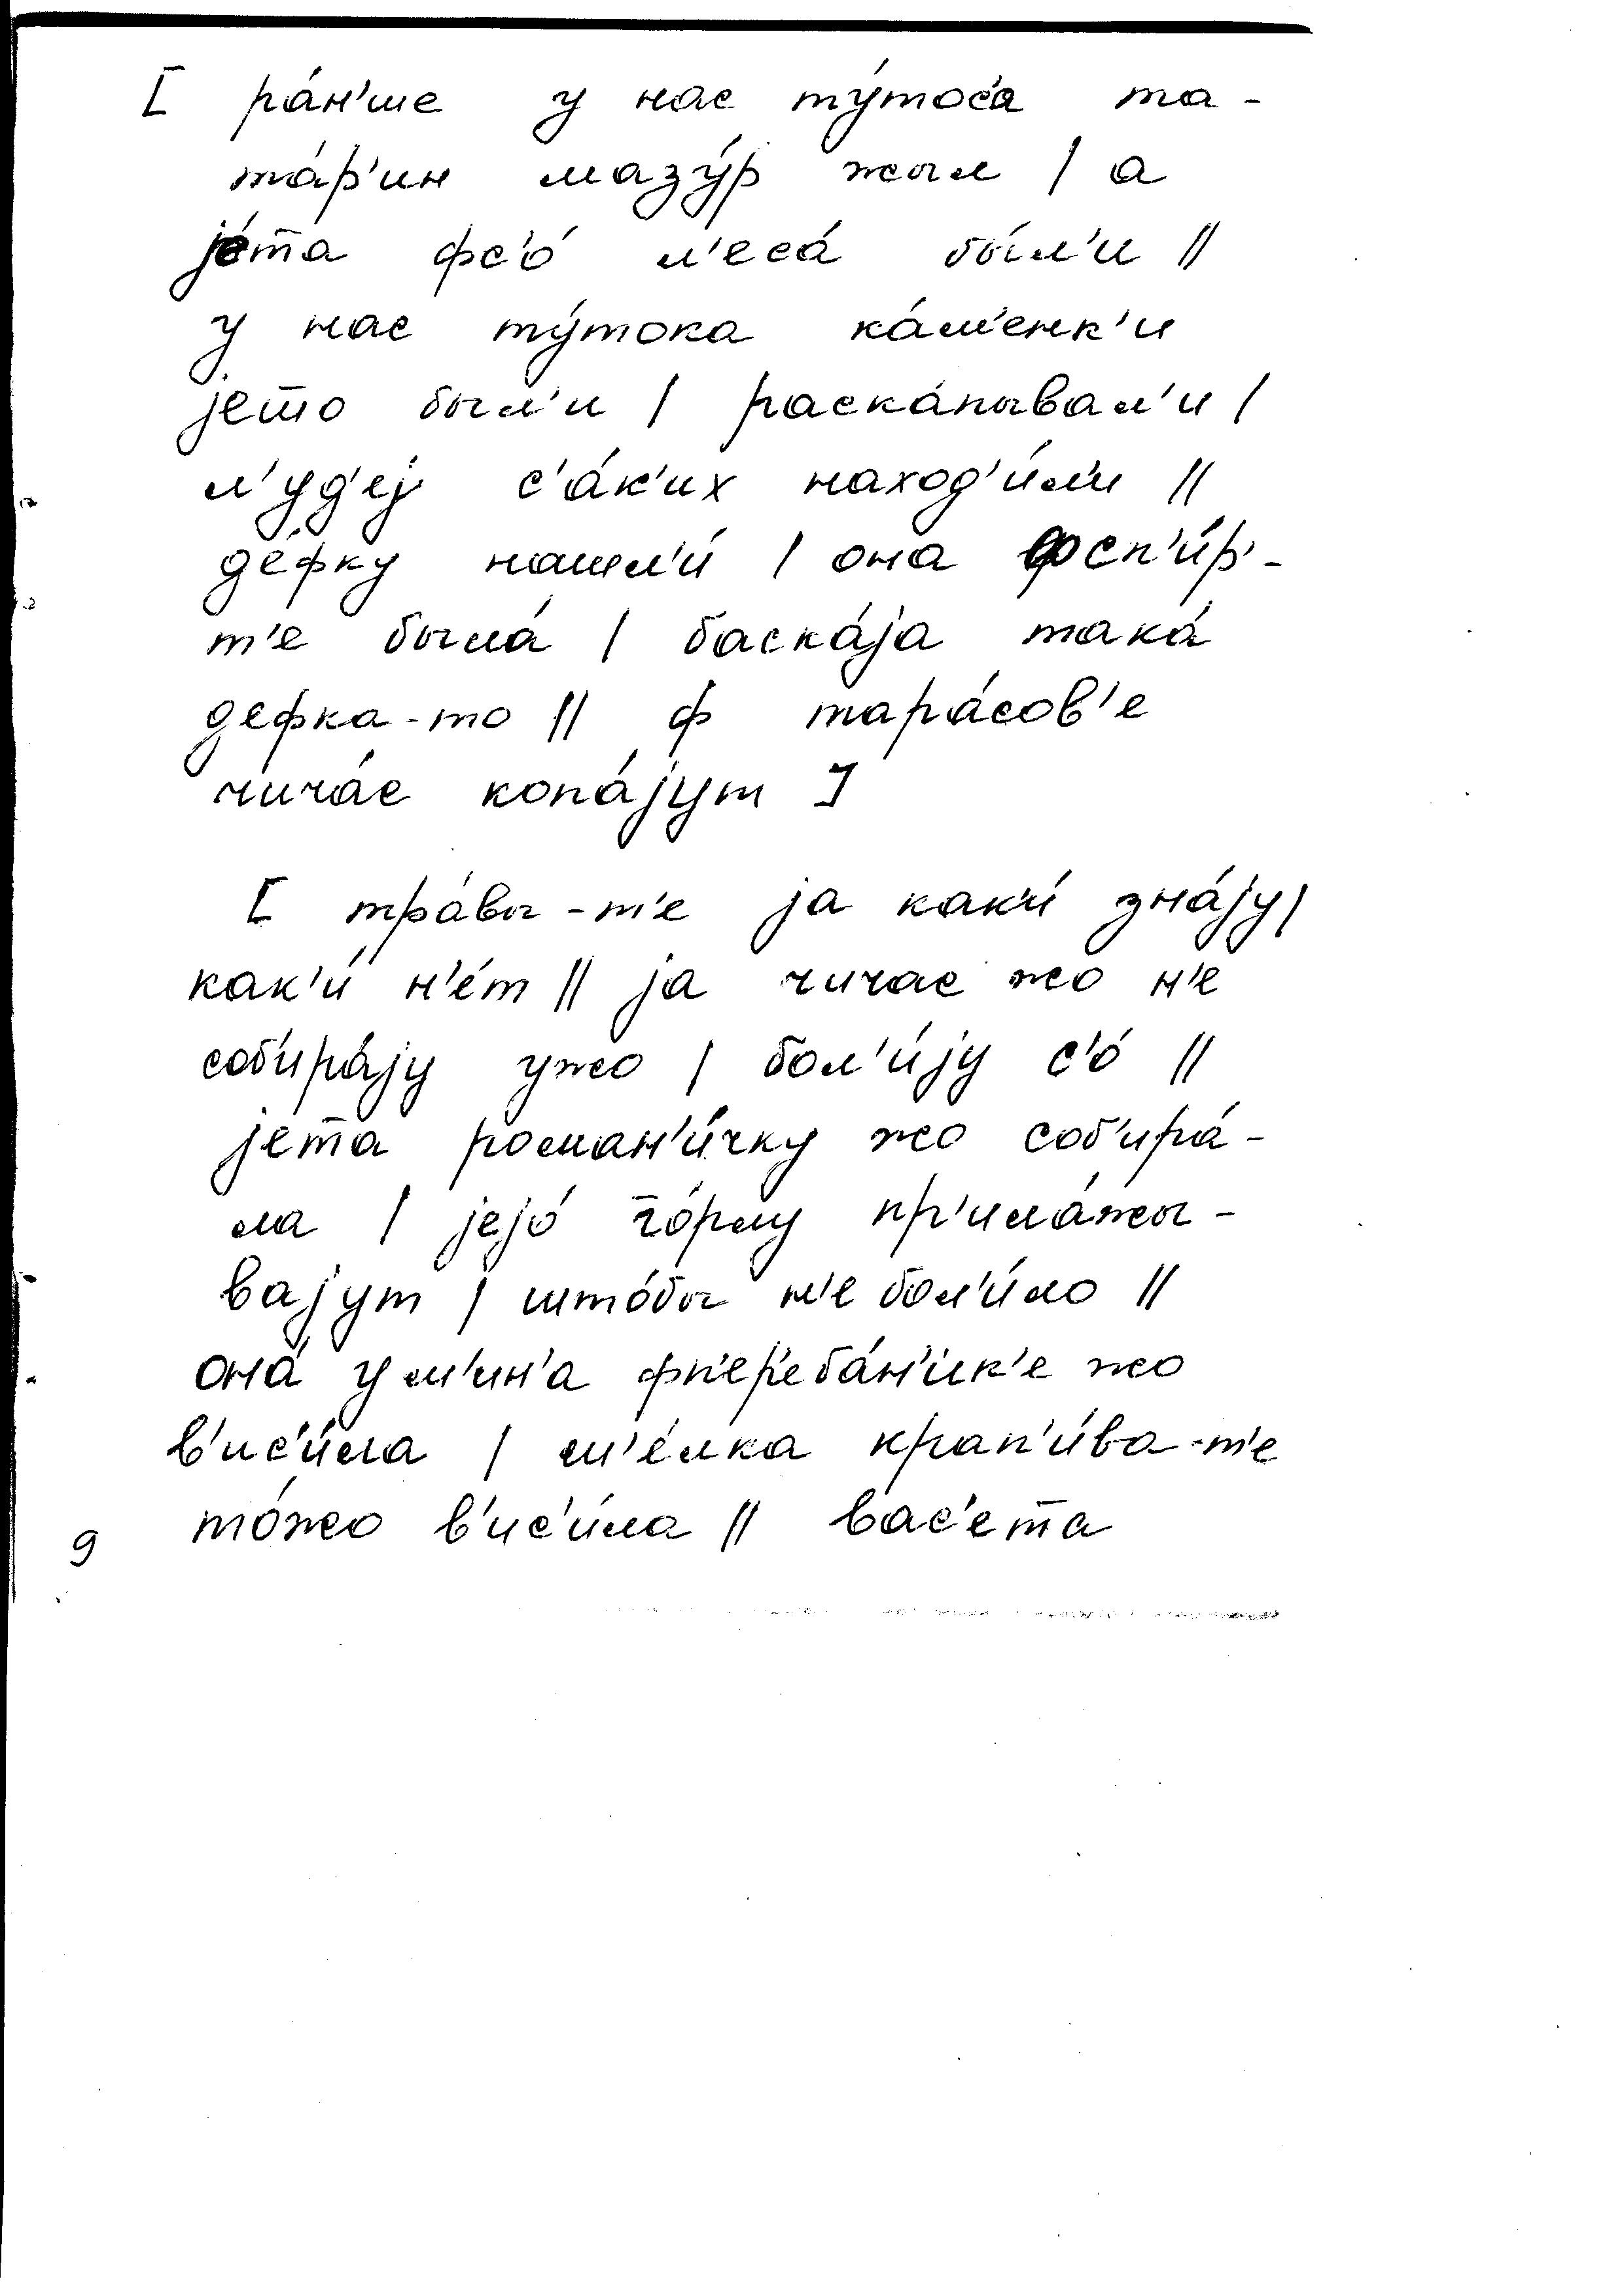 [ ра́н'ше у нас ту́тос'а та-
та́р'ин мазу́р жыл / а
је́та фс'о́ л'еса́ бы́л'и //
у нас ту́тока ка́м'енк'и
јето был'и / раска́пывал'и /
л'уд'еј с'а́к'их наход'и́л'и //
де́фку нашл'и́ / она фсп'и́р'-
т'е была́ / баска́ја така́
дефка-то // ф тара́сов'е
чича́с копа́јут ]
[ тра́вы-т'е ја как'и́ зна́ју /
как'и́ н'е́т // ја чичас жо н'е
соб'ира́ју ужо / бол'и́ју с'о́ //
јета роман'и́чку жо соб'ира́-
ла / јејо́ чо́рму пр'ила́жы-
вајут / што́бы н'е бол'и́ло //
она́ у м'ин'а фп'ер'еба́н'ик'е жо
в'ис'и́ла / м'е́лка крап'и́ва-т'е
то́жо в'ис'и́ла // вас'ета
9